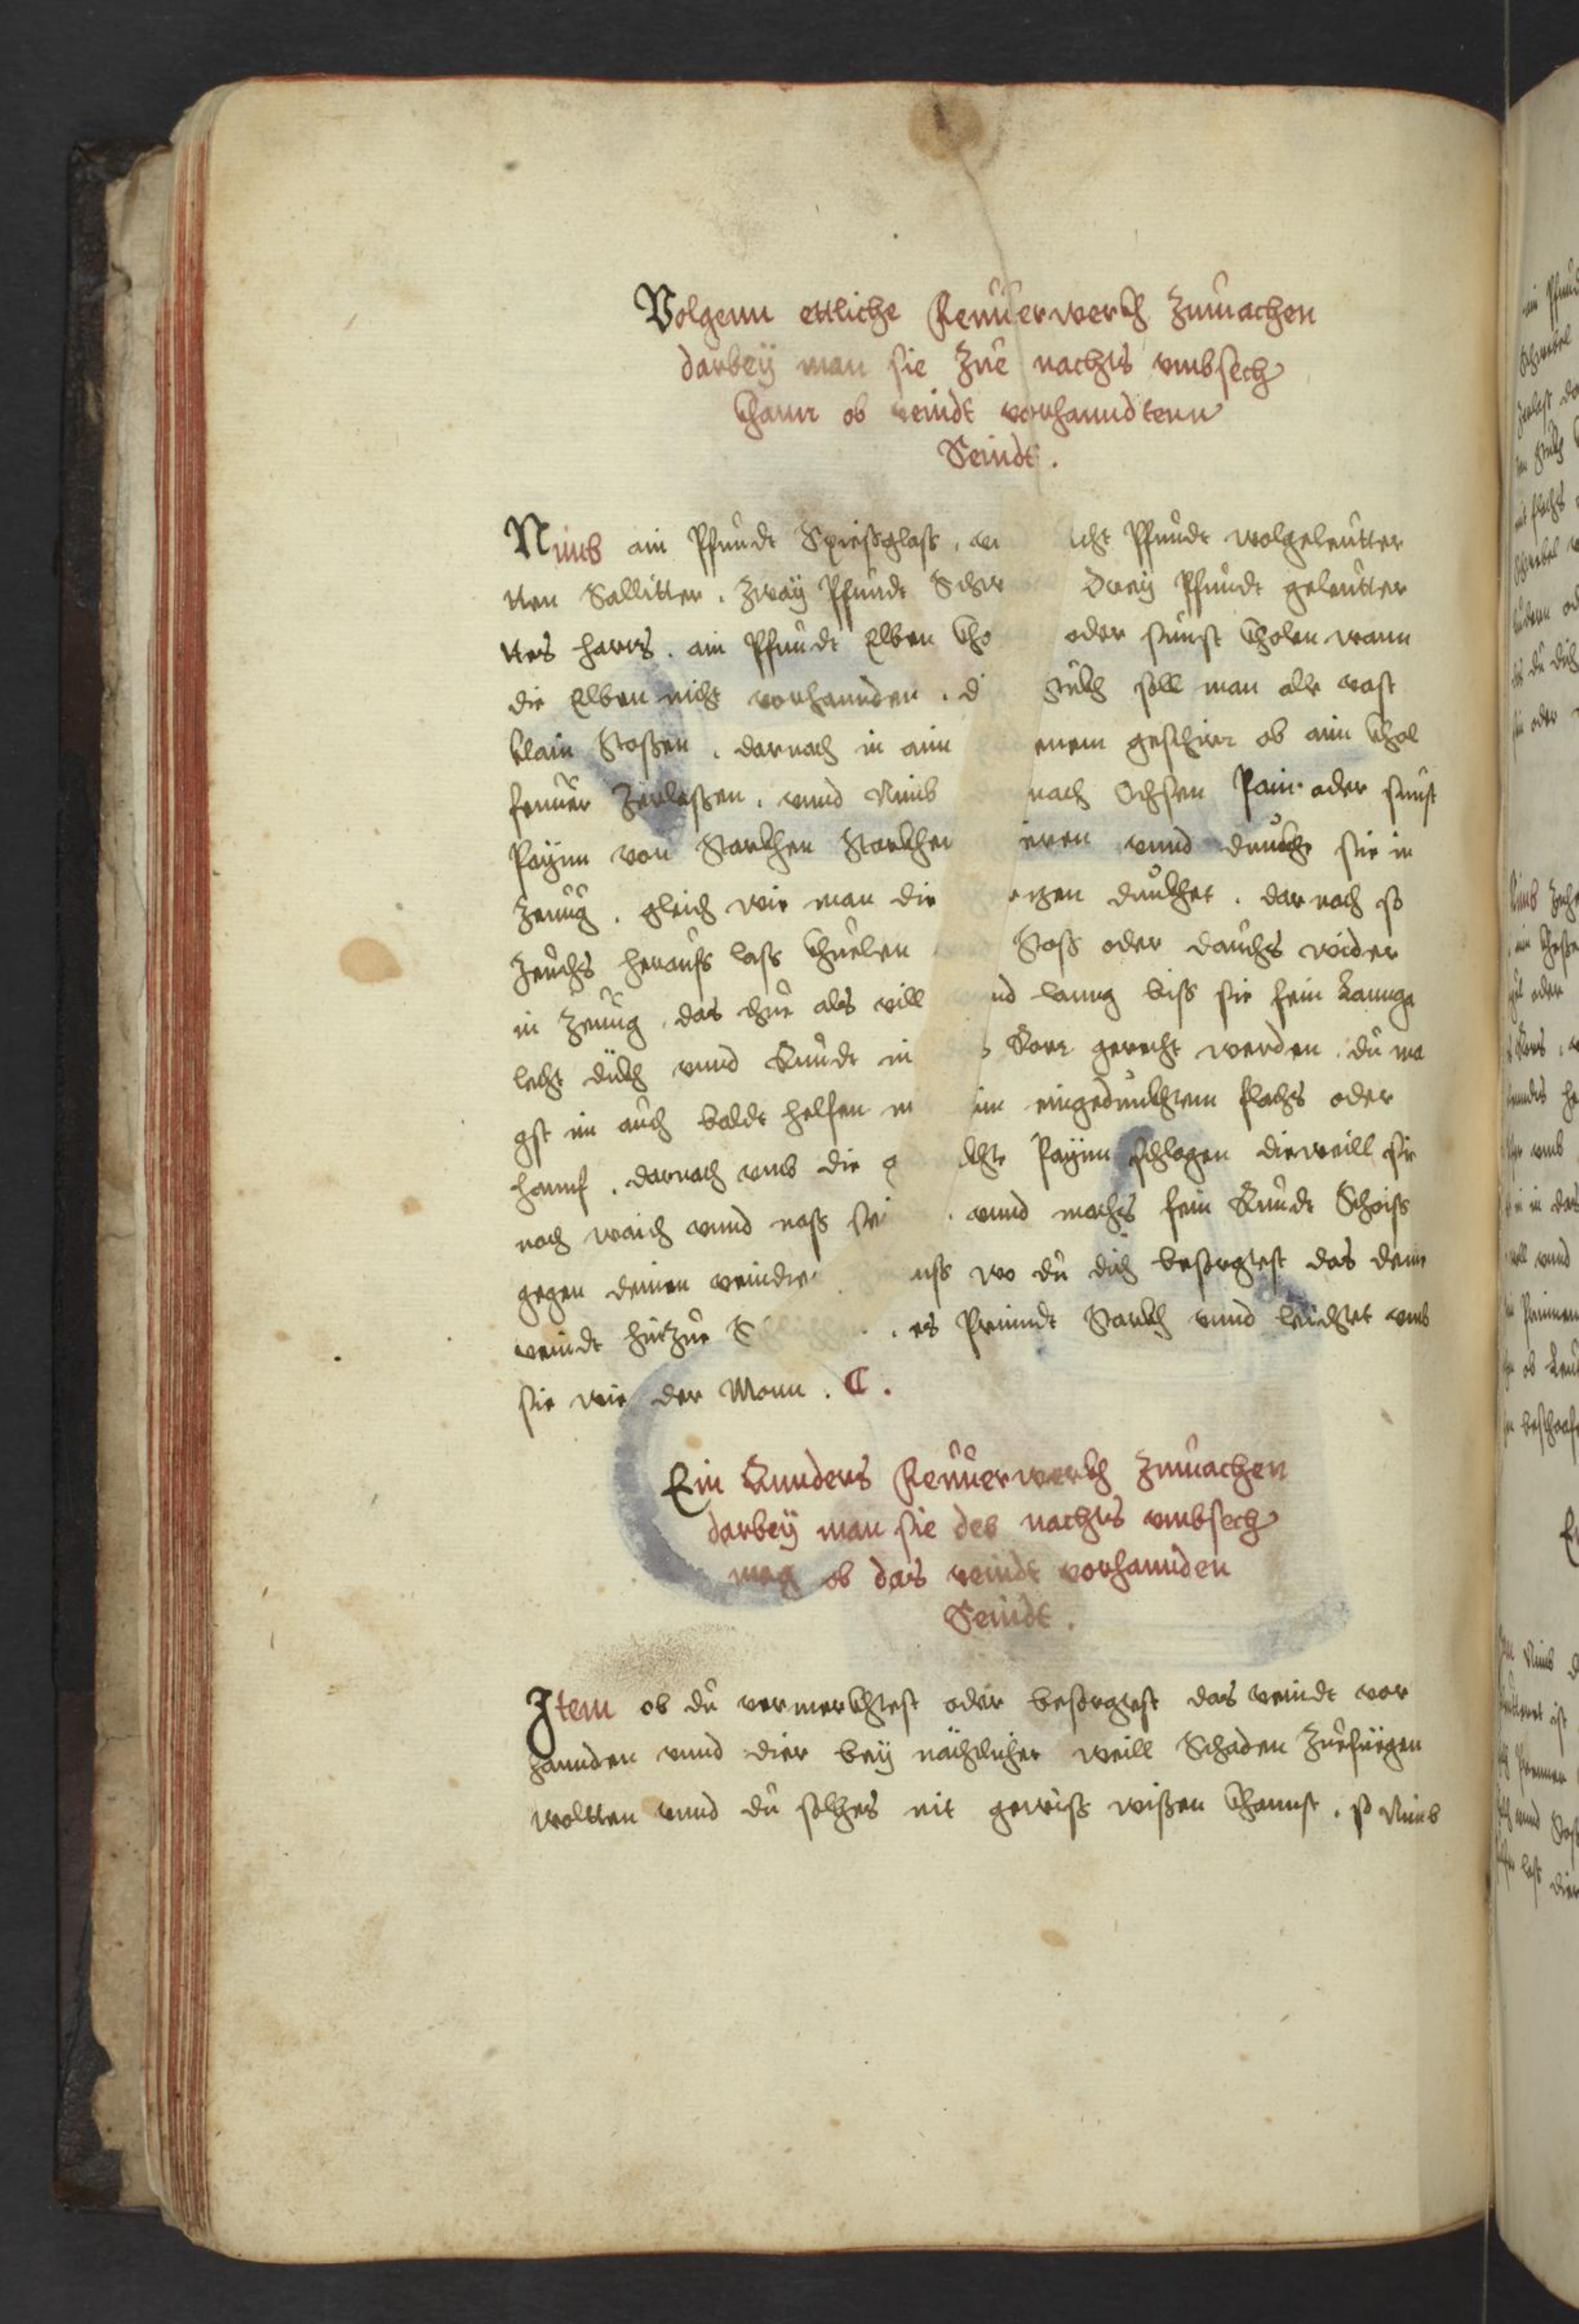 Volgenn ettliche Feuüerwerkh Zumachen
darbeÿ man sie Zue nachts vmbsech
Khann ob veindt vorhanndtenn
Seindt .
Nimb ain Pfundt Spießglaß , acht Pfundt wolgeleütter
tten Sallitter . Zwaÿ Pfundt Drey Pfundt geleütter
ttes harts . ain Pfundt Elben oder sunst Kholen wann
die Elben nicht vorhannden . stükh soll man alle vast
klain Stoßen . darnach in ain geschirr ob aim Khol
feuüer Zerlaßen . vnnd Nimb Ochsen Pain oder sunst
Paÿnn von Starkhen Starkhen vnnd dunkhe sie in
Zeuüg . gleich wie man die dunkhet . dar nach so
Zeuchs herauß laß Khuelen Stoß oder dauchs wider
in Zeuüg , das thue als vill vnnd lanng biß sie fein Lannge
lecht dükh vnnd Rundt in Rorr gerecht werden . du ma
gst in auch baldt helfen mit eingedunkhtem flachs oder
hannf . darnach vmb die Paÿnn schlagen dieweill sie
noch waich vnnd naß sein . vnnd machs fein Rundt Scheiß
gegen deinen veindten wo du dich besorgtest das dein
veindt hin Zue . es Prinndt Starkh vnnd leichtet vmb
sie wie der Monn . C .
Ein Annders Feuüerwerkh Zumachen
darbeÿ man sie des nachts vmbsech
mag ob das veindt vorhannden
Seindt .
Item ob du vermerkhtest oder besorgtest das veindt vor
hannden vnnd dier beÿ nächtlicher weill Schaden Zuefüegen
woltten vnnd du solhes nit gewiß wißen Khannst . so Nimb